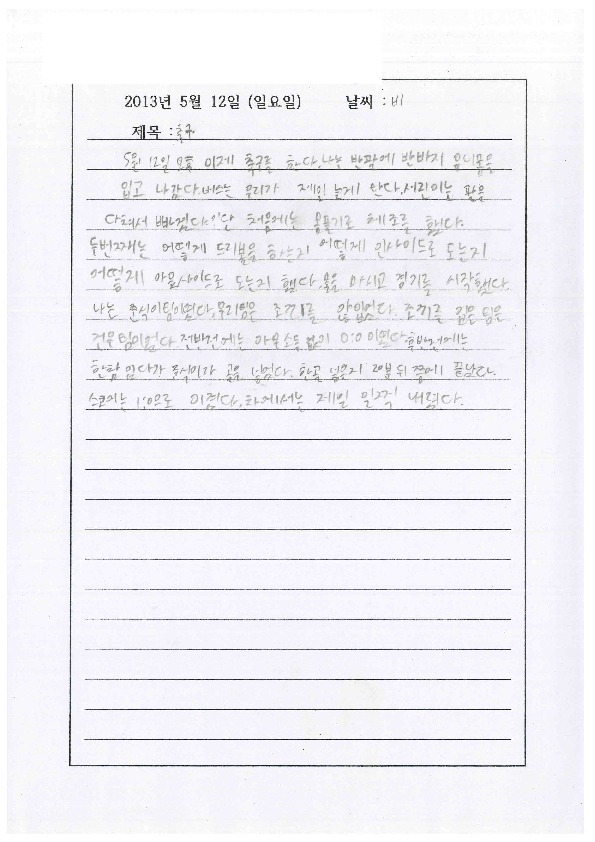 2013년 5월 12일 (일요일) 날씨 : 비
제목 : 축구
5월 12일 이제 축구를 한다. 나는 반팔에 반바지 유니폼을
입고 나갔다. 버스는 우리가 제일 늦게 탄다. 서린이는 팔을
다쳐서 빠졌다. 처음에는 몸풀기로 체조를 했다.
두번째는 어떻게 드리볼을 하는지 어떻게 인사이드로 도는지
어떻게 아웃사이드로 도는지 했다. 물을 마시고 경기를 시작했다.
나는 준식이팀이였다. 우리팀은 조끼를 않입었다. 조끼를 입은 팀은
건우팀이였다. 전반전에는 아무소득 없이 0:0이였다. 후반전에는
한참 있다가 준식이가 골을 넣었다. 한골 넣은지 20분 뒤 쯤에 끝났다.
스코어는 1:0으로 이겼다. 차에서는 제일 일찍 내렸다.